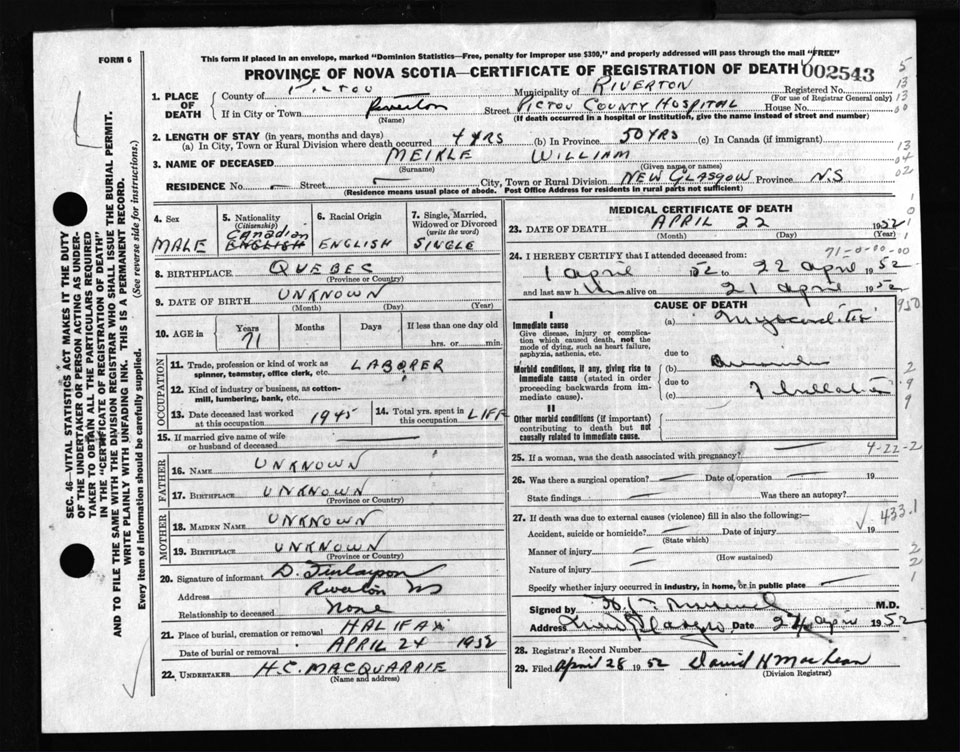 This form if placed in an envelope, marked "Dominion Statistics—Free, penalty for improper use $300," and properly addressed will pass through the mail "FREE"
FORM 6
PROVINCE OF NOVA SCOTIA—CERTIFICATE OF REGISTRATION OF DEATH 002543
1. PLACE OF DEATH County of PICTOU Municipality of RIVERTON Registered No.
(For use of Registrar General only)
If in City or Town Riverton Street PICTOU COUNTY HOSPITAL House No.
(Name) (If death occurred in a hospital or institution, give the name instead of street and number)
2. LENGTH OF STAY (in years, months and days)
(a) In City, Town or Rural Division where death occurred 4 YRS (b) In Province 50 YRS (c) In Canada (if immigrant)
3. NAME OF DECEASED MEIKLE WILLIAM
(Surname) (Given name or names)
RESIDENCE No. — Street — City, Town or Rural Division NEW GLASGOW Province N.S
(Residence means usual place of abode. Post Office Address for residents in rural parts not sufficient)
SEC. 46—VITAL STATISTICS ACT MAKES IT THE DUTY
OF THE UNDERTAKER OR PERSON ACTING AS UNDER-
TAKER TO OBTAIN ALL THE PARTICULARS REQUIRED
IN THE "CERTIFICATE OF REGISTRATION OF DEATH"
AND TO FILE THE SAME WITH THE DIVISION REGISTRAR WHO SHALL ISSUE THE BURIAL PERMIT.
WRITE PLAINLY WITH UNFADING INK. THIS IS A PERMANENT RECORD.
Every item of information should be carefully supplied. (See reverse side for instructions.)
4. Sex MALE
5. Nationality (Citizenship) Canadian ENGLISH
6. Racial Origin ENGLISH
7. Single, Married, Widowed or Divorced (write the word) SINGLE
8. BIRTHPLACE QUEBEC
(Province or Country)
9. DATE OF BIRTH UNKNOWN
(Month) (Day) (Year)
10. AGE in Years 71 Months Days If less than one day old
hrs. or min.
OCCUPATION
11. Trade, profession or kind of work as spinner, teamster, office clerk, etc. LABORER
12. Kind of industry or business, as cotton-mill, lumbering, bank, etc.
13. Date deceased last worked at this occupation 1945
14. Total yrs. spent in this occupation LIFE
15. If married give name of wife or husband of deceased
FATHER
16. NAME UNKNOWN
17. BIRTHPLACE UNKNOWN
(Province or Country)
MOTHER
18. MAIDEN NAME UNKNOWN
19. BIRTHPLACE UNKNOWN
(Province or Country)
20. Signature of informant D. Finlayson
Address Riverton NS
Relationship to deceased None
21. Place of burial, cremation or removal HALIFAX
Date of burial or removal APRIL 24 1952
22. UNDERTAKER H.C. MACQUARRIE
(Name and address)
MEDICAL CERTIFICATE OF DEATH
23. DATE OF DEATH APRIL 22 1952
(Month) (Day) (Year)
71-0-00-00
24. I HEREBY CERTIFY that I attended deceased from:
1 April 1952 to 22 April 1952
and last saw him alive on 21 April 1952
CAUSE OF DEATH
I
Immediate cause (a) Myocarditis
Give disease, injury or complication which caused death, not the mode of dying, such as heart failure, asphyxia, asthenia, etc.
due to
Morbid conditions, if any, giving rise to immediate cause (stated in order proceeding backwards from immediate cause). (b)
due to
(c)
II
Other morbid conditions (if important) contributing to death but not causally related to immediate cause.
25. If a woman, was the death associated with pregnancy? 4-22-2
26. Was there a surgical operation? — Date of operation — 19
State findings — Was there an autopsy? —
433.1
27. If death was due to external causes (violence) fill in also the following:—
Accident, suicide or homicide? Date of injury 19
(State which)
Manner of injury
(How sustained)
Nature of injury
Specify whether injury occurred in industry, in home, or in public place
Signed by M.D.
Address New Glasgow Date 24 April 1952
28. Registrar's Record Number
29. Filed April 28 1952 David H MacLean
(Division Registrar)